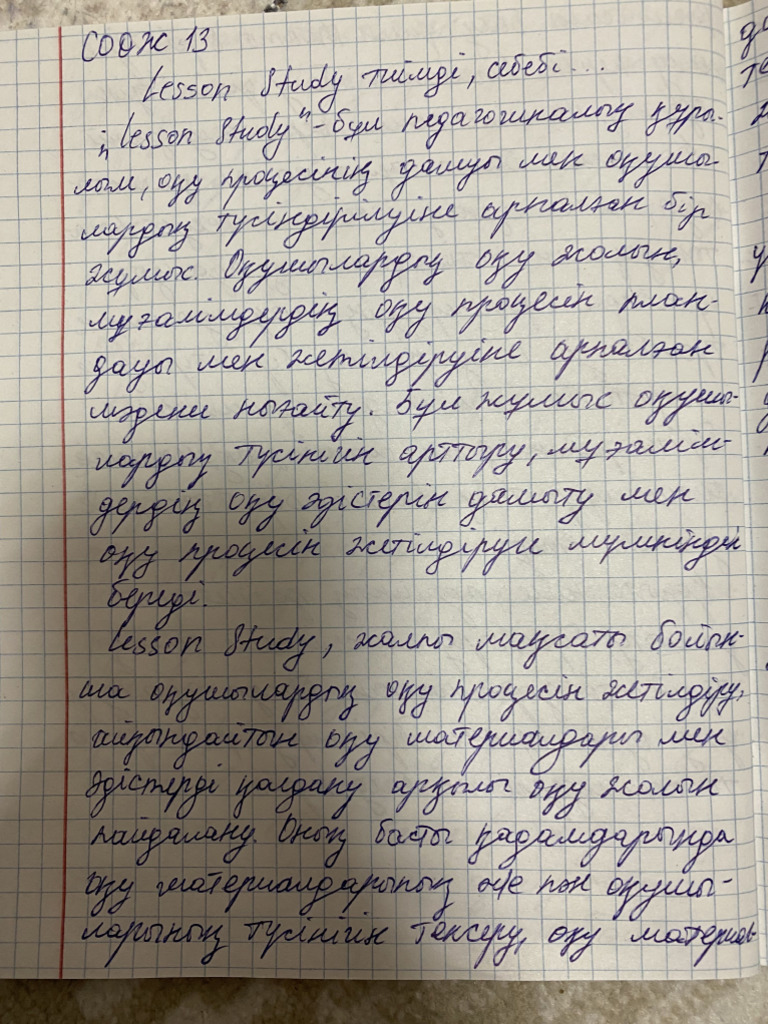 СОӨЖ 13
Lesson Study тиімді, себебі...
„Lesson Study" - бұл педагогикалық құры-
лым, оқу процесінің дамуы мен оқушы-
лардың түсіндірілуіне арналған бір
жұмыс. Оқушылардың оқу жолын,
мұғалімдердің оқу процесін план-
дауы мен жетілдіруіне арналған
мәдени нығайту. Бұл жұмыс оқушы-
лардың түсінігін арттыру, мұғалім-
дердің оқу әдістерін дамыту мен
оқу процесін жетілдіруге мүмкіндік
береді.
Lesson Study, жалпы мақсаты бойын-
ша оқушылардың оқу процесін жетілдіру,
айқындайтын оқу материалдары мен
әдістерді қолдану арқылы оқу жолын
пайдалану. Оның басты қадамдарында
оқу материалдарының және пән оқушы-
ларының түсінігін тексеру, оқу материал-